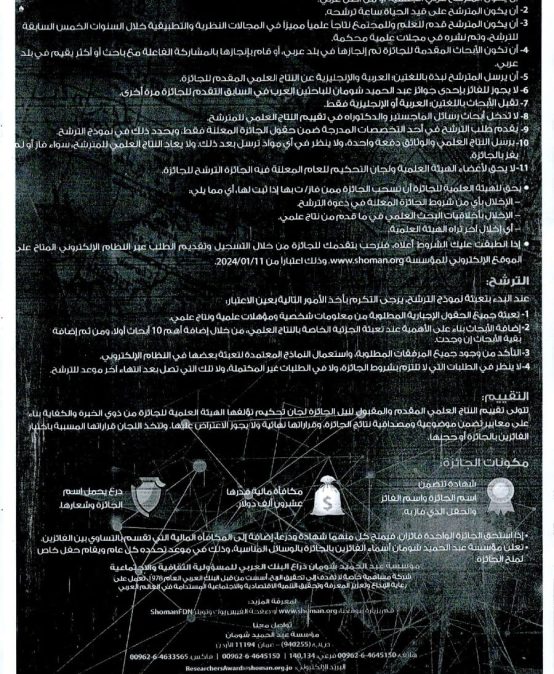 2- أن يكون المترشح على قيد الحياة ساعة ترشحه.
3- أن يكون المترشح قدم للعلم وللمجتمع نتاجاً علمياً مميزاً في المجالات النظرية والتطبيقية خلال السنوات الخمس السابقة
للترشح، وتم نشره في مجلات علمية محكمة.
4- أن تكون الأبحاث المقدمة للجائزة تم إنجازها في بلد عربي، أو قام بإنجازها بالمشاركة الفاعلة مع باحث أو أكثر يقيم في بلد
عربي.
5- أن يرسل المترشح نبذة باللغتين: العربية والإنجليزية عن النتاج العلمي المقدم للجائزة.
6- لا يجوز للفائز بإحدى جوائز عبد الحميد شومان للباحثين العرب في السابق التقدم للجائزة مرة أخرى.
7- تقبل الأبحاث باللغتين: العربية أو الإنجليزية فقط.
8- لا تدخل أبحاث رسائل الماجستير والدكتوراه في تقييم النتاج العلمي للمترشح.
9- يقدم طلب الترشح في أحد التخصصات المدرجة ضمن حقول الجائزة المعلنة فقط، ويحدد ذلك في نموذج الترشح.
10- يرسل النتاج العلمي والوثائق دفعة واحدة، ولا ينظر في أي مواد ترسل بعد ذلك، ولا يعاد النتاج العلمي للمترشح، سواء فاز أو لم
يفز بالجائزة.
11- لا يحق لأعضاء الهيئة العلمية ولجان التحكيم للعام نفسه الترشح للجائزة.
• يحق للهيئة العلمية للجائزة أن تسحب الجائزة ممن فاز/ت بها إذا ثبت لها، أي مما يلي:
– الإخلال بأي من شروط الجائزة المعلنة في دعوة الترشح.
– الإخلال بأخلاقيات البحث العلمي في ما قدم من نتاج علمي.
– أي إخلال آخر تراه الهيئة العلمية.
• إذا انطبقت عليك الشروط أعلاه، فنرحب بتقدمك للجائزة من خلال التسجيل وتقديم الطلب عبر النظام الإلكتروني المتاح على
الموقع الإلكتروني للمؤسسة www.shoman.org، وذلك اعتباراً من 2024/01/11.
الترشح:
عند البدء بتعبئة نموذج الترشح، يرجى التكرم بأخذ الأمور التالية بعين الاعتبار:
1- تعبئة جميع الحقول الإجبارية المطلوبة من معلومات شخصية ومؤهلات علمية ونتاج علمي.
2- إضافة الأبحاث بناء على الأهمية عند تعبئة الجزئية الخاصة بالنتاج العلمي، من خلال إضافة أهم 10 أبحاث أولا، ومن ثم إضافة
بقية الأبحاث إن وجدت.
3- التأكد من وجود جميع المرفقات المطلوبة، واستعمال النماذج المعتمدة لتعبئة بعضها في النظام الإلكتروني.
4- لا ينظر في الطلبات التي لا تلتزم بشروط الجائزة، ولا في الطلبات غير المكتملة، ولا تلك التي تصل بعد انتهاء آخر موعد للترشح.
التقييم:
تتولى تقييم النتاج العلمي المقدم والمقبول لنيل الجائزة لجان تحكيم تؤلفها الهيئة العلمية للجائزة من ذوي الخبرة والكفاية بناء
على معايير تضمن موضوعية ومصداقية نتائج الجائزة، وقراراتها نهائية ولا يجوز الاعتراض عليها. وتتخذ اللجان قراراتها المسببة باختيار
الفائزين بالجائزة أو حجبها.
مكونات الجائزة:
شهادة تتضمن
اسم الجائزة واسم الفائز
والحقل الذي فاز به.
مكافأة مالية قدرها
عشرون ألف دولار
درع يحمل اسم
الجائزة وشعارها.
• إذا استحق الجائزة الواحدة فائزان، فيمنح كل منهما شهادة ودرعا، إضافة إلى المكافأة المالية التي تقسم بالتساوي بين الفائزين.
• تعلن مؤسسة عبد الحميد شومان أسماء الفائزين بالجائزة بالوسائل المناسبة، وذلك في موعد تحدده كل عام ويقام حفل خاص
لمنح الجائزة.
مؤسسة عبد الحميد شومان ذراع البنك العربي للمسؤولية الثقافية والاجتماعية
شركة مساهمة خاصة لا تهدف إلى تحقيق الربح، أسست من قبل البنك العربي العام 1978، تعمل على
رعاية الإبداع وتعزيز المعرفة وتحقيق التنمية الاقتصادية والاجتماعية المستدامة في العالم العربي
لمعرفة المزيد:
قم بزيارة موقعنا www.shoman.org أو صفحة الفيس بوك وتويتر ShomanFDN
تواصل معنا
مؤسسة عبد الحميد شومان
ص.ب (940255) – عمان 11194 الأردن
هاتف: 4645150-6-00962 فرعي 140,134 | 4645150-6-00962 | فاكس: 4633565-6-00962
البريد الإلكتروني: ResearchersAward@shoman.org.jo